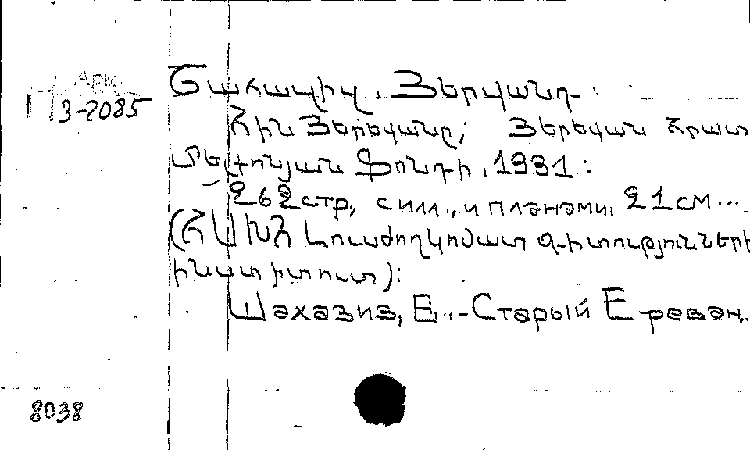 Арм.
1 3-2085
Շահազիզ, Յերվանդ.
Հին Յերեվանը; Յերեվան Հրատ
Մելքոնյան Ֆոնդի, 1931:
262 стр, с илл., и планами, 21 см...
(ՀԱԽՀ Լուսժողկոմատ Գիտությունների
ինստիտուտ):
Шахазиз, Е.-Старый Ереван.
8038